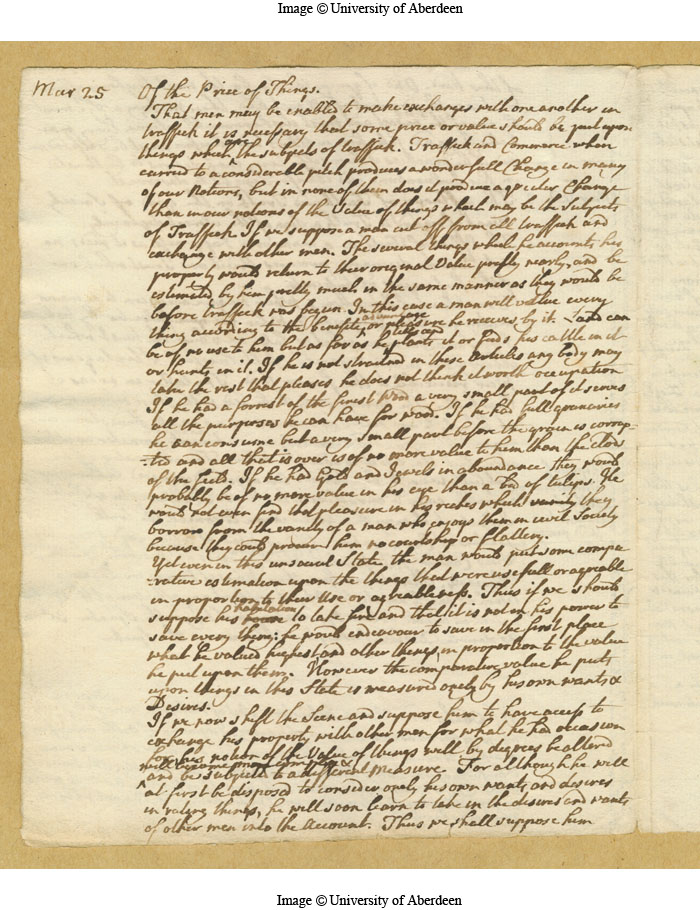 Image © University of Aberdeen
Mar 25 Of the Price of Things.
That men may be enabled to make exchanges with one another in
traffick it is necessary that some price or value should be put upon
things which are the subjects of traffick. Traffick and Commerce when
carried to a considerable pitch produces a wonderfull Change in many
of our Notions, but in none of them does it produce a greater Change
than in our notions of the Value of things which may be the Subjects
of Traffick. If we suppose a man cut off from all traffick and
exchange with other men. The several things which he accounts his
property would return to their original Value pretty nearly, and be
estimated by him pretty much in the same manner as they would be
before traffick was begun. In this case a man will value every
thing according to the benefite, advantage or pleasure he receives by it. Land can
be of no use to him but as far as he plants it or feeds his cattle in it
or hunts in it. If he is not straitned in these articles any body may
take the rest that pleases he does not think it worth occupation
If he had a forrest of the finest Wood a very small part of it serves
all the purposes he can have for wood. If he had full granaries
he can consume but a very small part before the grain is corrup-
-ted and all that is over is of no more value to him than the clods
of the field. If he had Gold and Jewels in abundance they would
probably be of no more value in his eye than a bed of tulips. He
would not even find that pleasure in his riches which vanity they
borrow from the vanity of a man who enjoys them in civil Society
because they could procure him no courtship or flattery.
Yet even in this unsocial State, the man would put some compa
-rative estimation upon the things that were usefull or agreable
in proportion to their Use or agreableness. Thus if we should
suppose his house habitation to take fire and that it is not in his power to
save every thing: he would endeavour to save in the first place
what he valued highest, and other things in proportion to the value
he put upon them. However the comparative value he puts
upon things in this State is measured onely by his own wants &
Desires.
If we now shift the Scene and suppose him to have access to
exchange his property with other men for what he had occasion
for his notion of the Value of things will by degrees be altered
will become more complex &
and be subject to a different Measure. For although he will
at first be disposed to consider onely his own wants and desires
in valuing things, he will soon learn to take in the desires and wants
of other men into the Account. Thus we shall suppose him
Image © University of Aberdeen